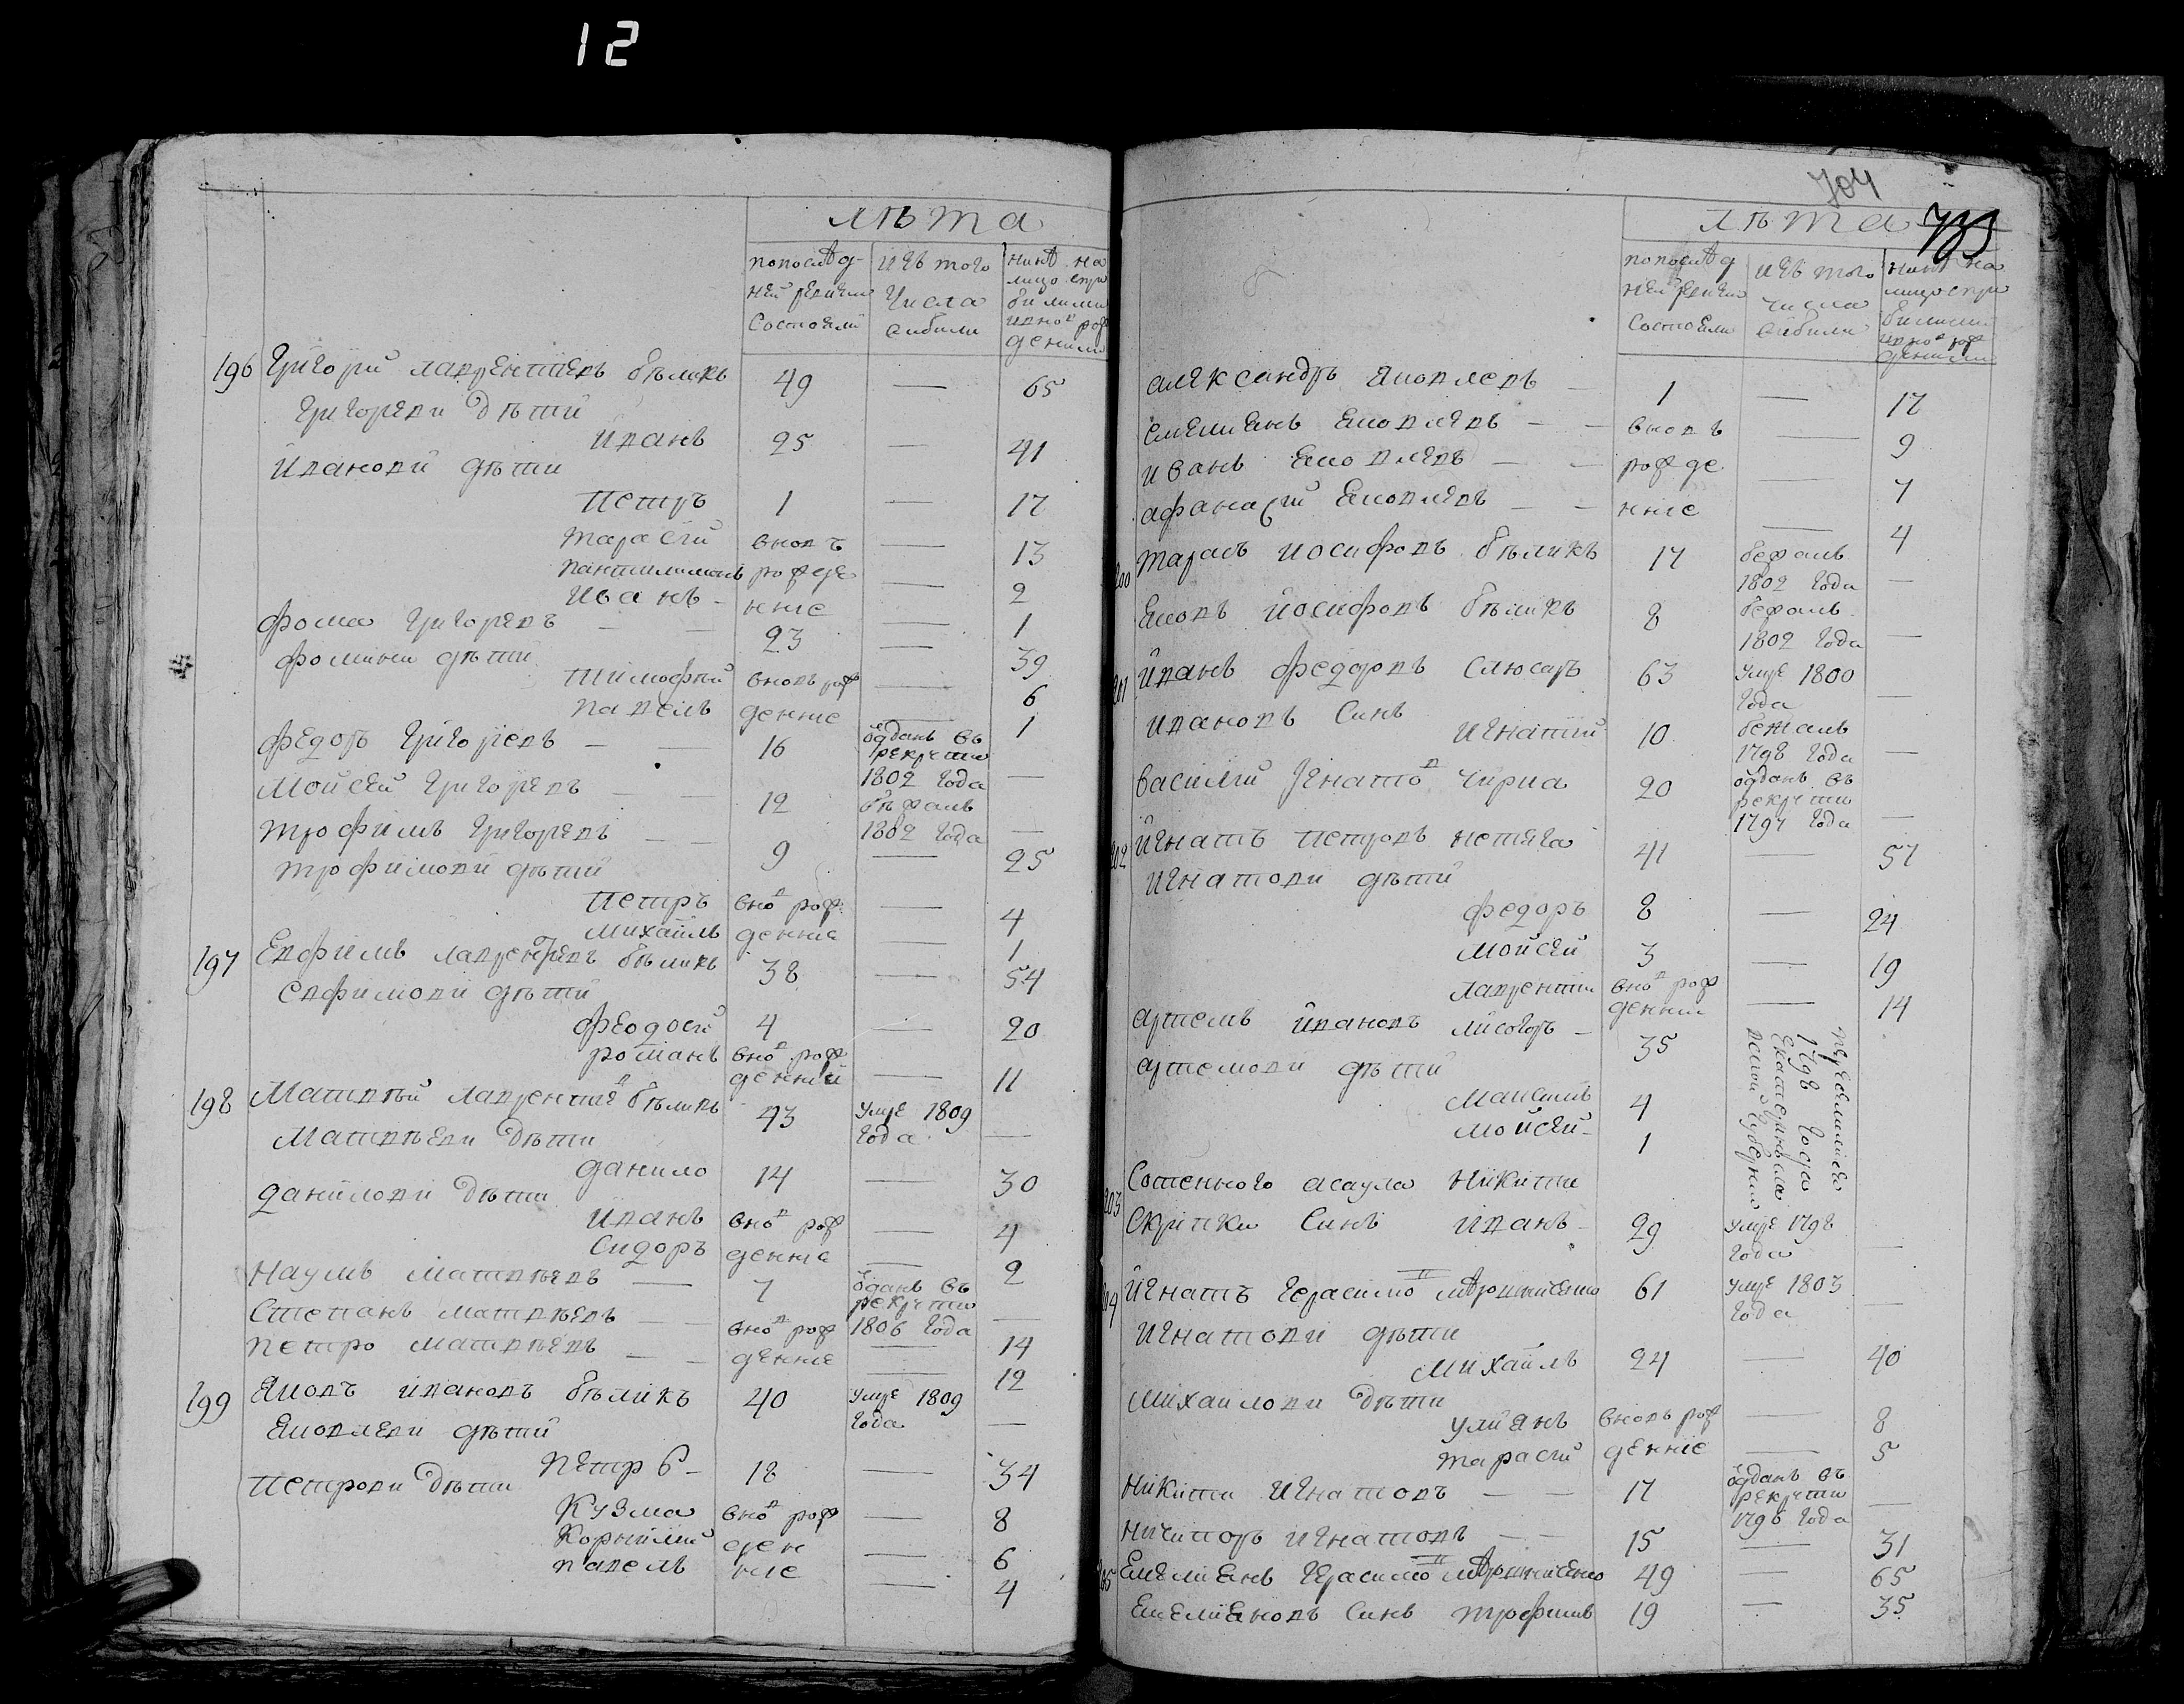 12
лѣта
по послѣд-
ней ревизіи
состояли
изъ того
числа
выбыли
нинѣ на
лицо спри
билими
и вновъ рож
денными
196 Григорий Лаврентіевъ Бѣликъ 49 — 65
Григориеви дѣти
Иванъ 25 — 41
Ивановй дѣти
Петръ 1 — 17
Тарасій вновъ — 13
Пантилимонъ рожде — 2
Иванъ - нніе — 1
Фома Григориевъ — — 23 — 39
Фомини дѣти
Тимофѣй вновь рож — 6
Павелъ денніе — 1
Федоръ Григориевъ — — 16 отданъ въ рекрути 1802 года —
Мойсей Григориевъ — — 12 бѣжалъ 1802 года —
Трофимъ Григориевъ — — 9 — 25
Трофимови дѣти
Петръ вновъ рож — 4
Михаилъ денніе — 1
197 Евфимъ Лаврентіевъ Бѣликъ 38 — 54
Евфимови дѣти
Феодосій 4 — 20
Романъ вновъ рожденній — 11
198 Матвѣй Лаврентіевъ Бѣликъ 43 умре 1809 года —
Матвѣеви дѣти
Данило 14 — 30
Данилови дѣти
Иванъ вновъ рож — 4
Сидоръ денніе — 2
Наумъ Матвѣевъ — 7 отданъ въ рекрути 1806 года —
Степанъ Матвѣевъ — — вновъ рож — 14
Петро Матвѣевъ — — денніе — 12
199 Яковъ Ивановъ Бѣликъ 40 умре 1809 года —
Яковлеви дѣти
Петръ - 18 — 34
Петрови дѣти
Кузма вновъ рож — 8
Корнилий ден — 6
Павелъ ніе — 4
704
лѣта
по послѣд
ней ревизіи
состояли
изъ того
числа
выбыли
нинѣ на
лицо спри
билими
и вновъ рож
денними
Александръ Яковлевъ — 1 — 17
Емелиянъ Яковлевъ — — вновъ — 9
Иванъ Яковлевъ — — рожде — 7
Афанасий Яковлевъ — — нніе — 4
200 Тарасъ Иосифовъ Бѣликъ 17 бежалъ 1802 года —
Яковъ Иосифовъ Бѣликъ 8 бежалъ 1802 года —
201 Иванъ Федоровъ Слюсарь 63 умре 1800 года —
Ивановъ синъ
Игнатий 10 бежалъ 1798 года —
Василий Игнатовъ Чирка 20 отданъ въ рекрути 1797 года —
202 Игнатъ Петровъ Нетяга 41 — 57
Игнатови дѣти
Федоръ 8 — 24
Мойсей 3 — 19
Лаврентий вновъ рожденній — 14
Артемъ Ивановъ Лисогоръ — 35
Переселились 1798 года Екатеринославской губерніи
Артемови дѣти
Максимъ 4
Мойсей - 1
203 Сотенного асаула Никити
Скрипки синъ Иванъ - 29 умре 1798 года —
204 Игнатъ Герасимовъ 61 умре 1803 года —
Игнатови дѣти
Михаилъ 24 — 40
Михаилови дѣти
Улиянъ вновь рож — 8
Тарасій денніе — 5
Никита Игнатовъ — — 17 отданъ въ рекрути 1796 года —
Ничипоръ Игнатовъ — — 15 — 31
205 Емелиянъ Герасимовъ 49 — 65
Емелияновъ синъ Трофимъ 19 — 35